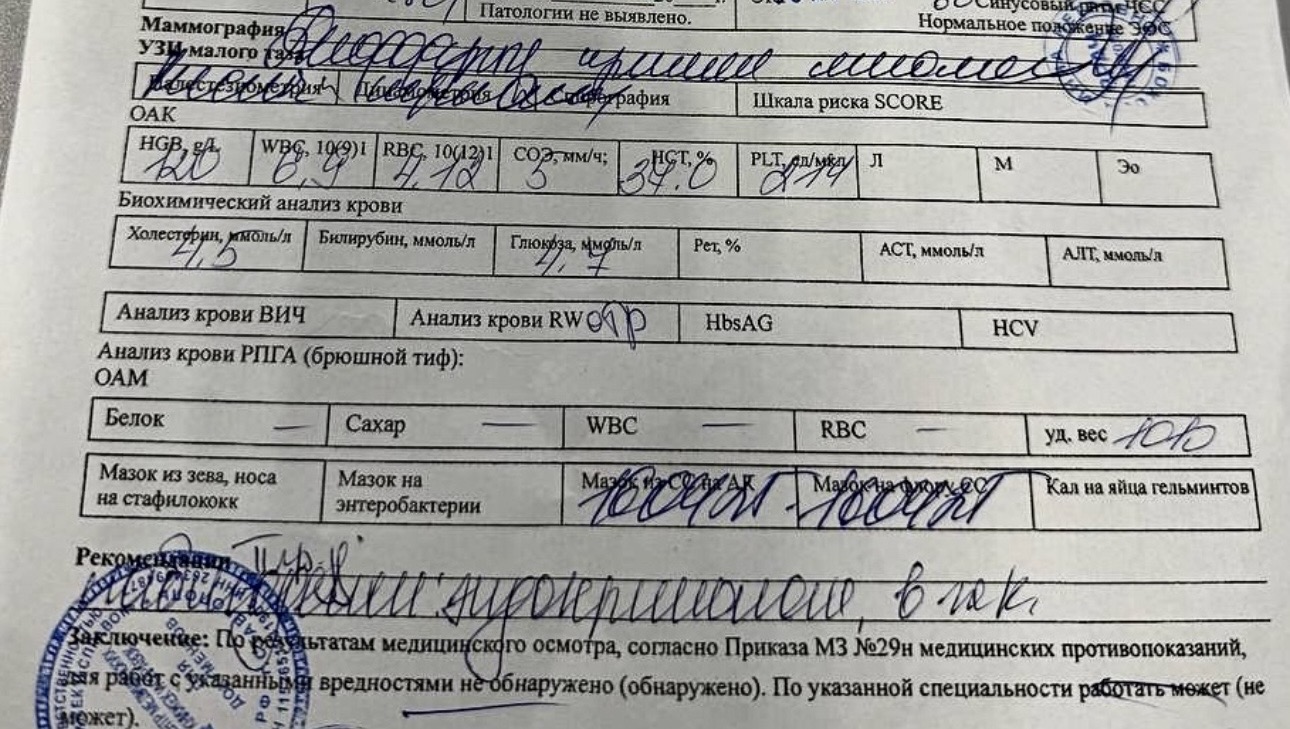 Патологии не выявлено.
Синусовый ритм ЧСС
Нормальное положение ЭОС
Маммография
УЗИ малого таза
Шкала риска SCORE
ОАК
HGB, g/L 120 WBC, 10(9)l 6,9 RBC, 10(12)l 4,12 СОЭ, мм/ч; 5 HCT, % PLT, ед/мкл 214 Л М Эо
Биохимический анализ крови
Холестерин, ммоль/л 4,5 Билирубин, ммоль/л Глюкоза, ммоль/л 4,7 Рет, % АСТ, ммоль/л АЛТ, ммоль/л
Анализ крови ВИЧ Анализ крови RW отр HbsAG HCV
Анализ крови РПГА (брюшной тиф):
ОАМ
Белок — Сахар — WBC — RBC — уд. вес
Мазок из зева, носа на стафилококк
Мазок на энтеробактерии
Мазок из СС на АК
Мазок на флору СС
Кал на яйца гельминтов
Рекомендации
Заключение: По результатам медицинского осмотра, согласно Приказа МЗ №29н медицинских противопоказаний,
для работ с указанными вредностями не обнаружено (обнаружено). По указанной специальности работать может (не
может).